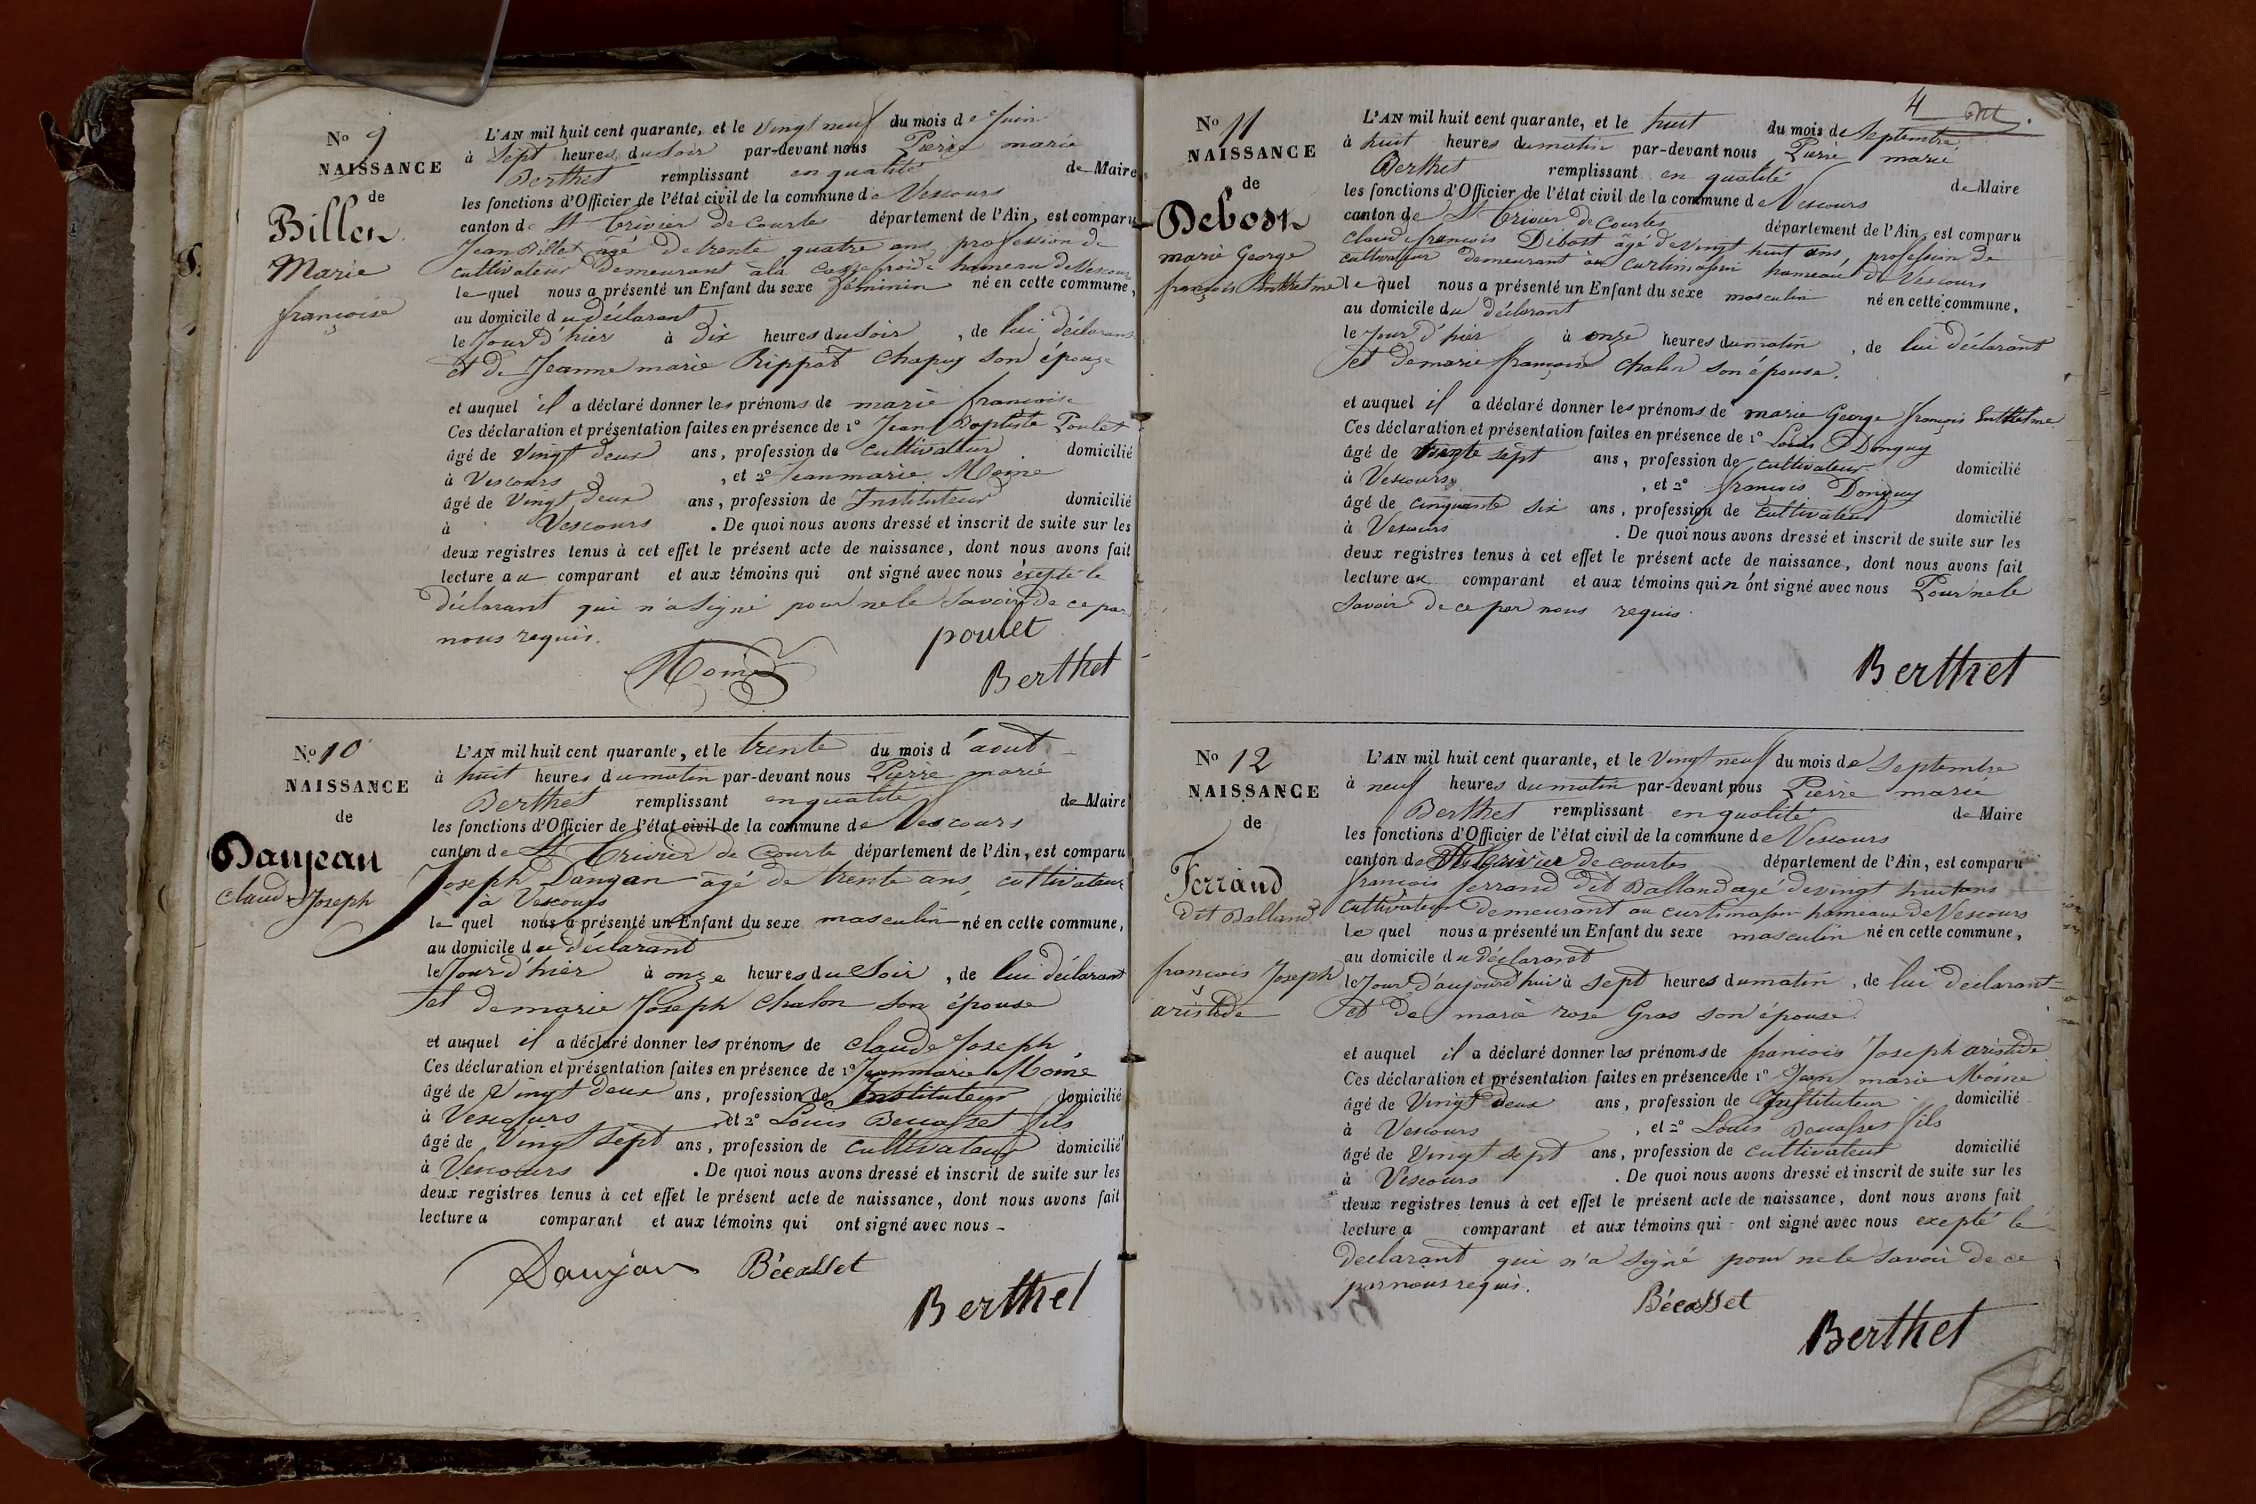 No 9
NAISSANCE
de
Billet
Marie
françoise
L'AN mil huit cent quarante, et le vingt neuf du mois de Juin
à Sept heures du soir par-devant nous Pierre marie
Berthet remplissant en qualité de Maire
les fonctions d'Officier de l'état civil de la commune de Vescours
canton de St Trivier de Courte département de l'Ain, est comparu
Jean Billet agé de trente quatre ans profession de
cultivateur demeurant à la casse froide hameau de Vescours
lequel nous a présenté un Enfant du sexe féminin né en cette commune,
au domicile du déclarant
le Jour d'hier à dix heures du soir , de lui déclarant
et de Jeanne marie Rippat Chapuy son épouse
et auquel il a déclaré donner les prénoms de marie francoise
Ces déclaration et présentation faites en présence de 1° Jean Baptiste Poulet
âgé de vingt deux ans, profession de cultivateur domicilié
à Vescours , et 2° Jean marie Moine
âgé de vingt deux ans, profession de Instituteur domicilié
à Vescours . De quoi nous avons dressé et inscrit de suite sur les
deux registres tenus à cet effet le présent acte de naissance, dont nous avons fait
lecture au comparant et aux témoins qui ont signé avec nous éxepté le
déclarant qui n'a signé pour ne le savoir de ce par
nous requis.
poulet
Moine
Berthet
No 10
NAISSANCE
de
Danjean
claude Joseph
L'AN mil huit cent quarante, et le trente du mois d'aout
à huit heures du matin par-devant nous Pierre marie
Berthet remplissant en qualité de Maire
les fonctions d'Officier de l'état civil de la commune de Vescours
canton de St Trivier de Courte département de l'Ain, est comparu
Joseph Danjan âgé de trente ans, cultivateur
à Vescours
lequel nous a présenté un Enfant du sexe masculin né en cette commune,
au domicile du déclarant
le Jour d'hier à onze heures du Soir , de lui déclarant
et de marie Joseph Chalon son épouse
et auquel il a déclaré donner les prénoms de Claude Joseph
Ces déclaration et présentation faites en présence de 1° Jean marie Moine
âgé de vingt deux ans, profession de Instituteur domicilié
à Vescours et 2° Louis Becasset fils
âgé de vingt sept ans, profession de cultivateur domicilié
à Vescours . De quoi nous avons dressé et inscrit de suite sur les
deux registres tenus à cet effet le présent acte de naissance, dont nous avons fait
lecture a comparant et aux témoins qui ont signé avec nous -
Danjan Bécasset
Berthet
4
No 11
NAISSANCE
de
Debost
marie George
françois Anthelme
L'AN mil huit cent quarante, et le huit du mois de Septembre
à huit heures du matin par-devant nous Pierre marie
Berthet remplissant en qualité de Maire
les fonctions d'Officier de l'état civil de la commune de Vescours
canton de St Trivier de Courtes département de l'Ain, est comparu
Claude françois Débost âgé de vingt huit ans, profession de
cultivateur demeurant au Curtimafin hameau de Vescours
lequel nous a présenté un Enfant du sexe masculin né en cette commune,
au domicile du déclarant
le Jour d'hier à onze heures du matin , de lui déclarant
et de marie françoise Chalon son épouse.
et auquel il a déclaré donner les prénoms de marie George françois Anthelme
Ces déclaration et présentation faites en présence de 1° Louis Donguy
âgé de trente sept ans, profession de cultivateur domicilié
à Vescours , et 2° françois Donguy
âgé de cinquante six ans, profession de cultivateur domicilié
à Vescours . De quoi nous avons dressé et inscrit de suite sur les
deux registres tenus à cet effet le présent acte de naissance, dont nous avons fait
lecture au comparant et aux témoins qui n'ont signé avec nous Pour ne le
savoir de ce par nous requis.
Berthet
No 12
NAISSANCE
de
Ferrand
dit Balland
françois Joseph
aristide
L'AN mil huit cent quarante, et le vingt neuf du mois de Septembre
à neuf heures du matin par-devant nous Pierre marie
Berthet remplissant en qualité de Maire
les fonctions d'Officier de l'état civil de la commune de Vescours
canton de St Trivier de courtes département de l'Ain, est comparu
françois ferrand dit Balland agé de vingt huit ans
cultivateur demeurant au curtimafin hameau de Vescours
lequel nous a présenté un Enfant du sexe masculin né en cette commune,
au domicile du déclarant
le Jour d'aujourd'hui à sept heures du matin , de lui déclarant
et de marie rose Gras son épouse.
et auquel il a déclaré donner les prénoms de francois Joseph aristide
Ces déclaration et présentation faites en présence de 1° Jean marie Moine
âgé de vingt deux ans, profession de Instituteur domicilié
à Vescours , et 2° Louis Becasset fils
âgé de vingt sept ans, profession de cultivateur domicilié
à Vescours . De quoi nous avons dressé et inscrit de suite sur les
deux registres tenus à cet effet le présent acte de naissance, dont nous avons fait
lecture a comparant et aux témoins qui ont signé avec nous exepté le
déclarant qui n'a signé pour ne le savoir de ce
par nous requis.
Bécasset
Berthet